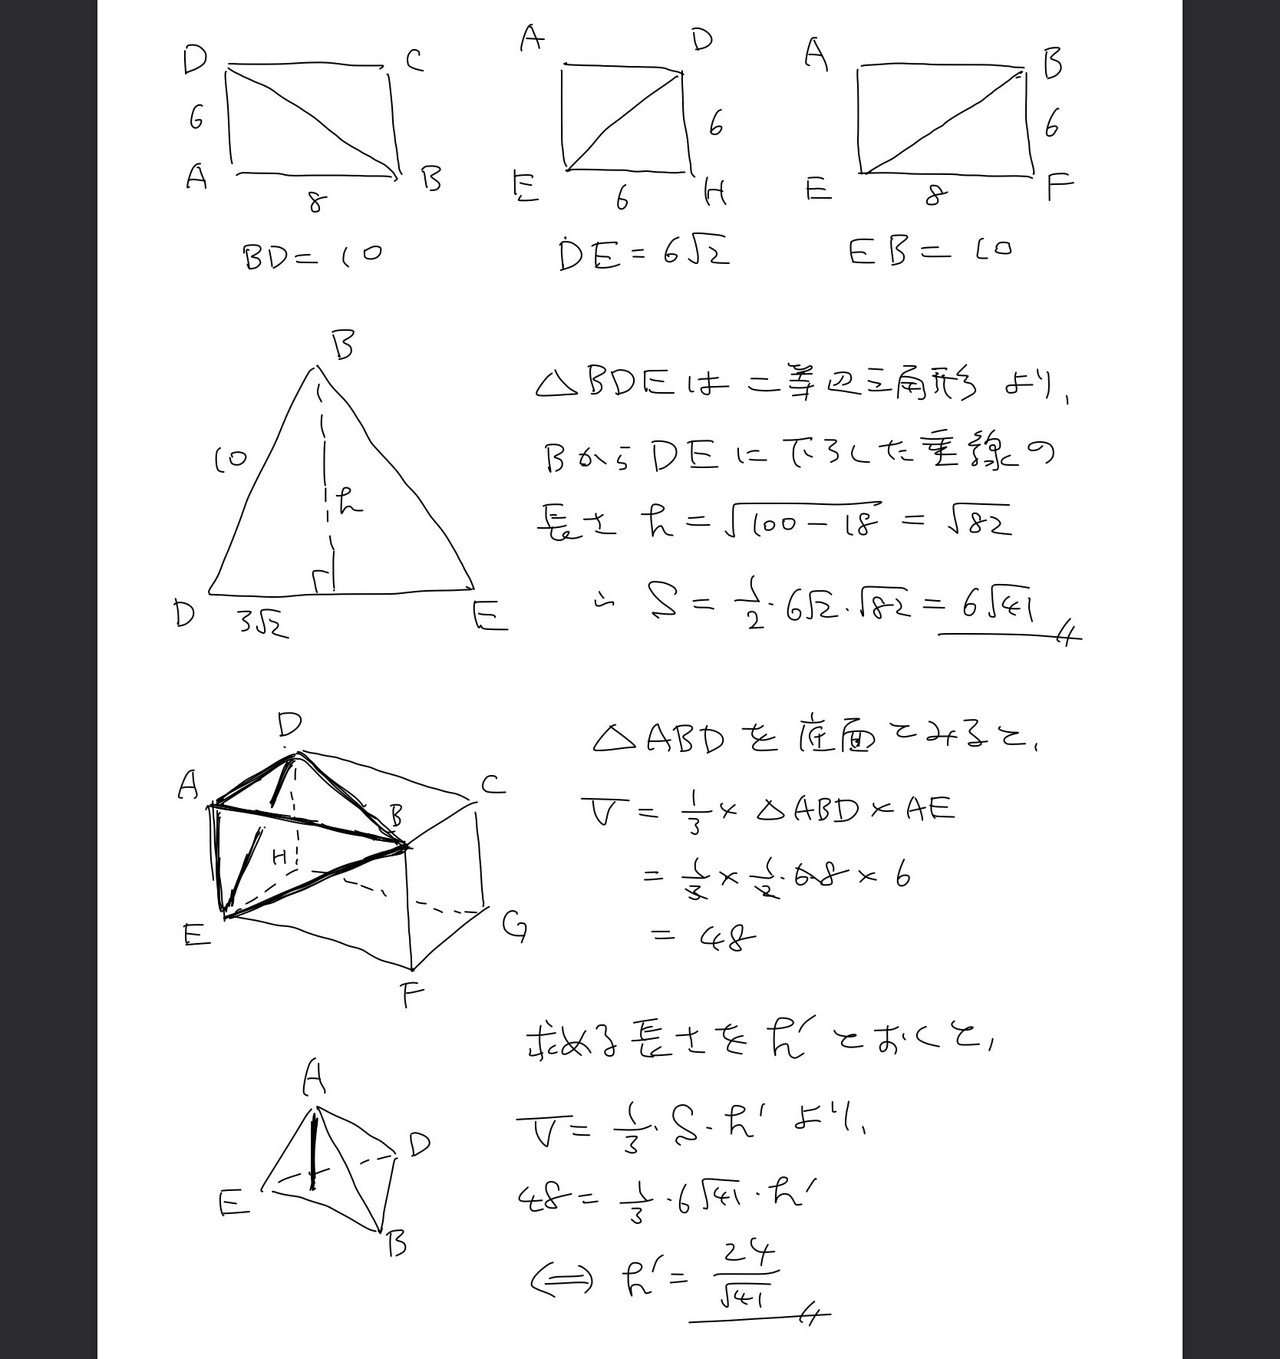 D C
6
A 8 B
BD = 10
A D
6
E 6 H
DE = 6√2
A B
6
E 8 F
EB = 10
B
10
h
D 3√2 E
△BDEは二等辺三角形より,
BからDEに下ろした垂線の
長さ h = √100-18 = √82
∴ S = 1/2・6√2・√82 = 6√41
D
A C
B
H
E G
F
△ABDを底面とみると,
V = 1/3 × △ABD × AE
= 1/3 × 1/2・6・8 × 6
= 48
A
D
E
B
求める長さをh'とおくと,
V = 1/3・S・h' より,
48 = 1/3・6√41・h'
⇔ h' = 24/√41